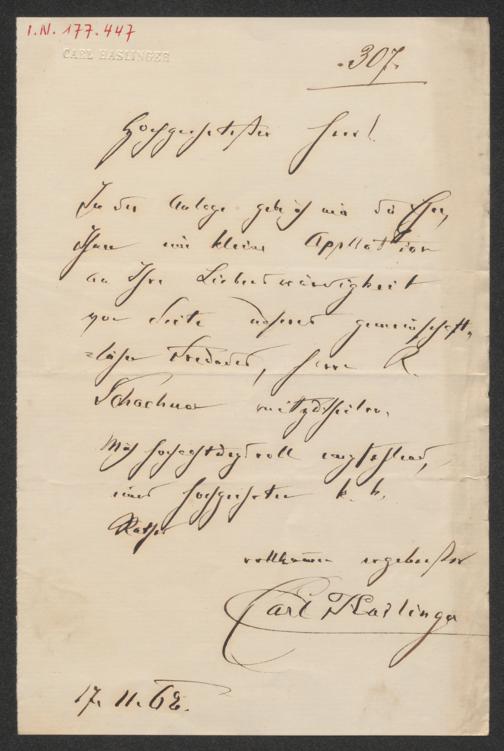 I.N. 177.447
CARL HASLINGER
307.
Hochgeehrtester Herr!
In der Anlage gebe ich mir die Ehre,
Ihnen eine kleine Appellation
an Ihre Liebenswürdigkeit
von Seite unseres gemeinschaft-
=lichen Freundes, Herrn R.
Schachner mitzutheilen.
Mich hochachtungsvoll empfehlend,
eines hochgeehrten k. k.
Rathes
vollkommen ergebenster
Carl Haslinger
17. 11. 62.